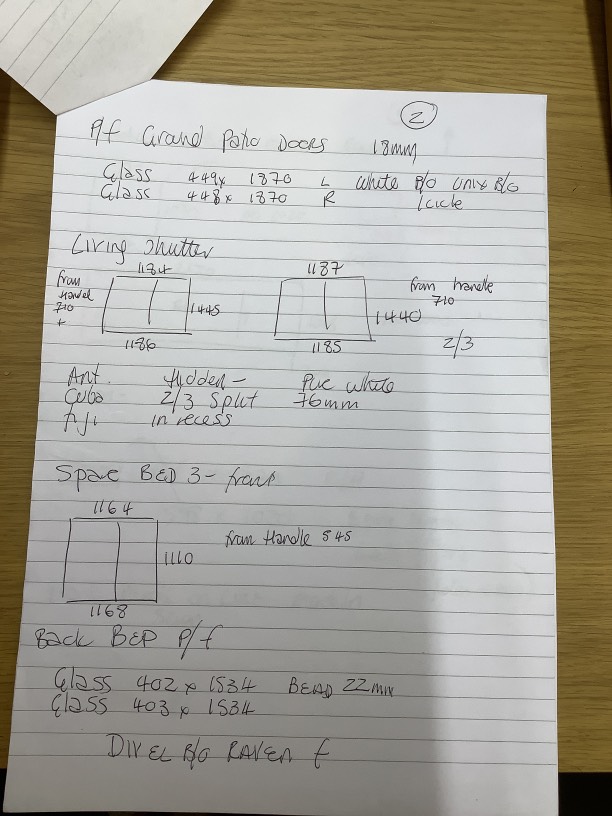 2
P/f Grand Patio Doors 18mm
Glass 449x 1870 L White B/o Unix B/o
Glass 448x 1870 R Icicle
Living Shutter
1184 1187
from
710 1445 from handle
710
1440
1186 1185 2/3
Ant. Hidden - PVC white
Cuba 2/3 Split 76mm
Fiji in recess
Spare BED 3 - front
1164
from Handle 545
1110
1168
Back BED P/f
Glass 402 x 1534 BEAD 22mm
Glass 403 x 1534
B/o RAVEN